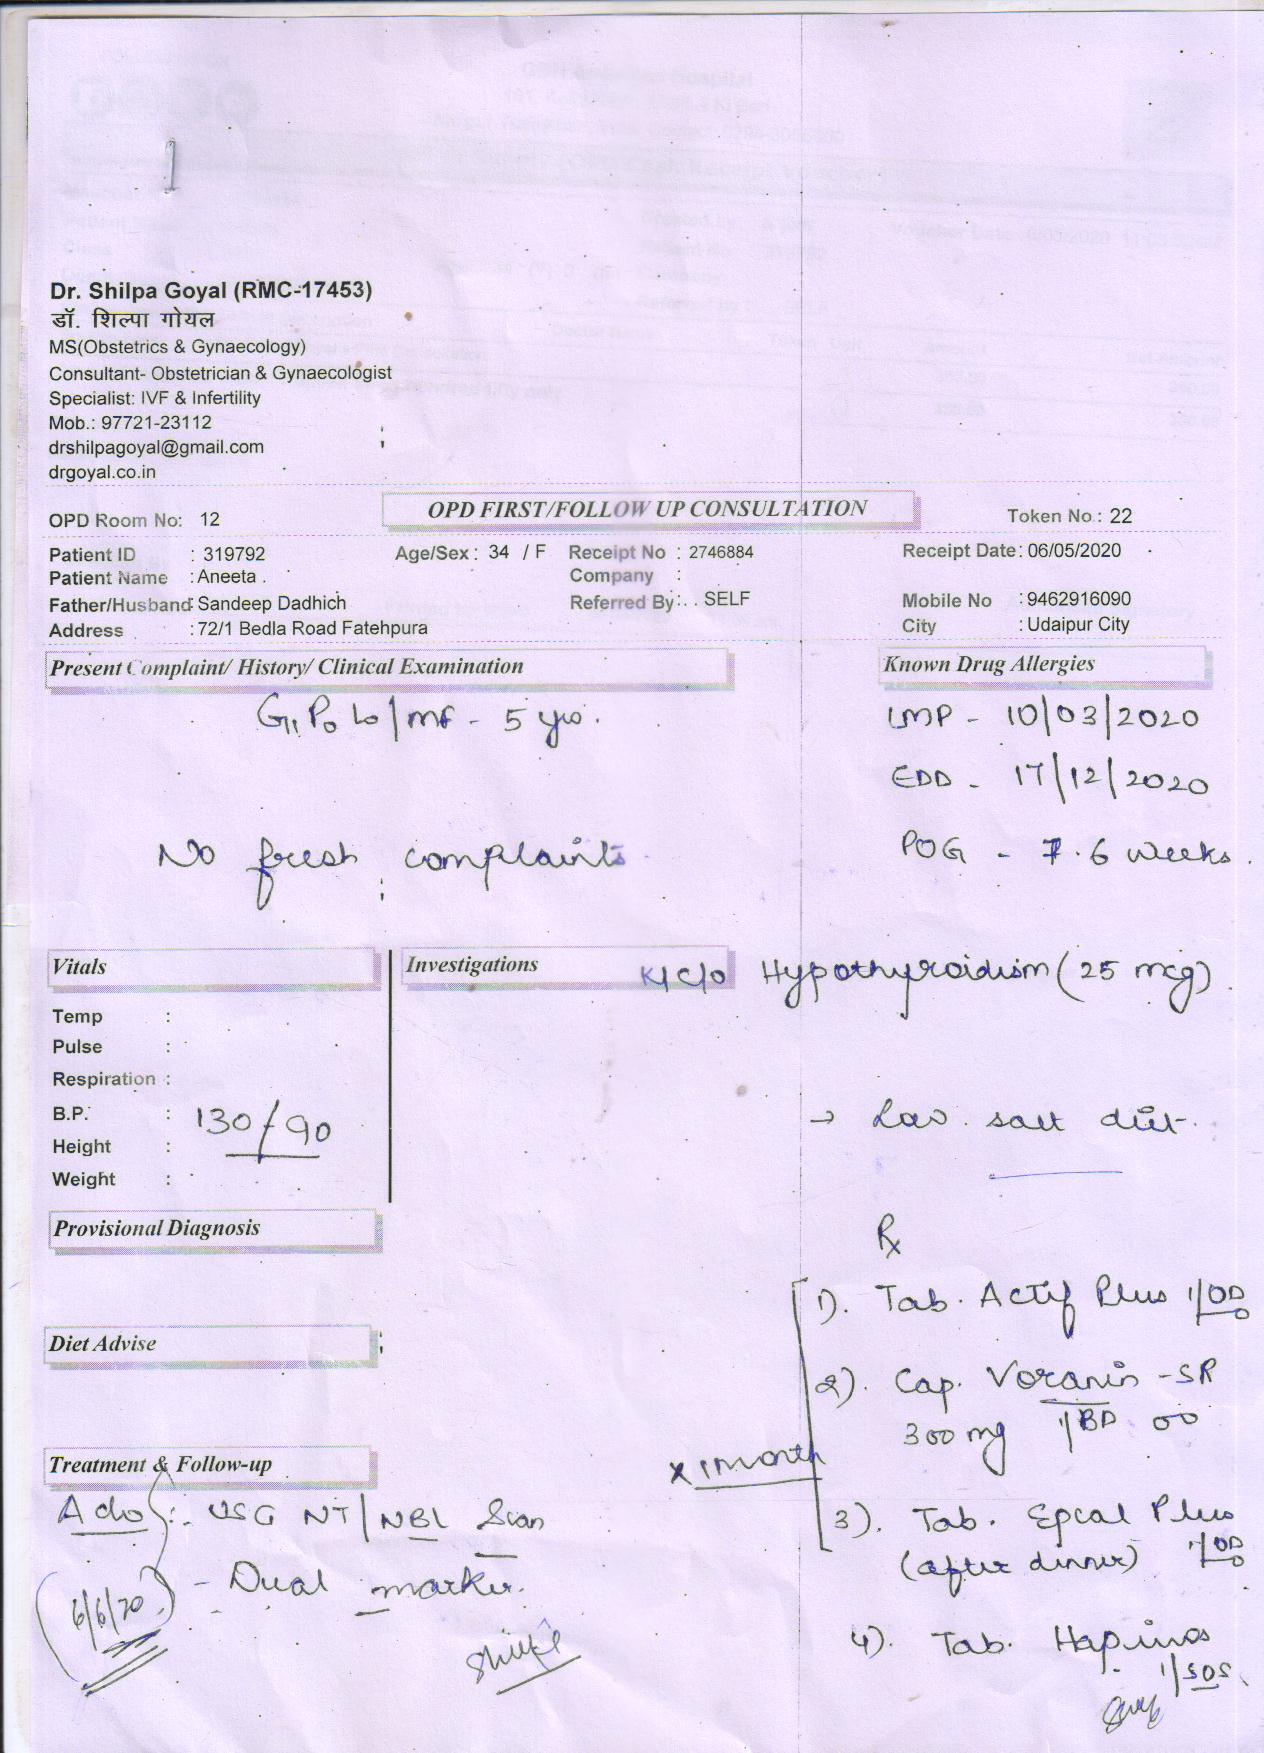 Dr. Shilpa Goyal (RMC-17453)
डॉ. शिल्पा गोयल
MS(Obstetrics & Gynaecology)
Consultant- Obstetrician & Gynaecologist
Specialist: IVF & Infertility
Mob.: 97721-23112
drshilpagoyal@gmail.com
drgoyal.co.in
OPD Room No: 12 OPD FIRST/FOLLOW UP CONSULTATION Token No.: 22
Patient ID : 319792 Age/Sex : 34 / F Receipt No : 2746884 Receipt Date: 06/05/2020
Patient Name : Aneeta . Company :
Father/Husband: Sandeep Dadhich Referred By: . . SELF Mobile No : 9462916090
Address : 72/1 Bedla Road Fatehpura City : Udaipur City
Present Complaint/ History/ Clinical Examination Known Drug Allergies
G1 P0 L0 / MF - 5 yrs. LMP - 10/03/2020
EDD - 17/12/2020
No fresh complaints POG - 7.6 weeks.
Vitals Investigations K/C/O Hypothyroidism (25 mcg).
Temp :
Pulse :
Respiration :
B.P. : 130/90 → Low salt diet.
Height :
Weight :
Provisional Diagnosis
Rx
1). Tab. Actif Plus 1/OD
Diet Advise
2). Cap. -SR
300mg 1/BD
Treatment & Follow-up x 1 month
Adv :- USG NT/NBL Scan 3). Tab. Epcal Plus
(after dinner) 1/OD
6/6/20 - Dual marker.
4). Tab. 1/SOS